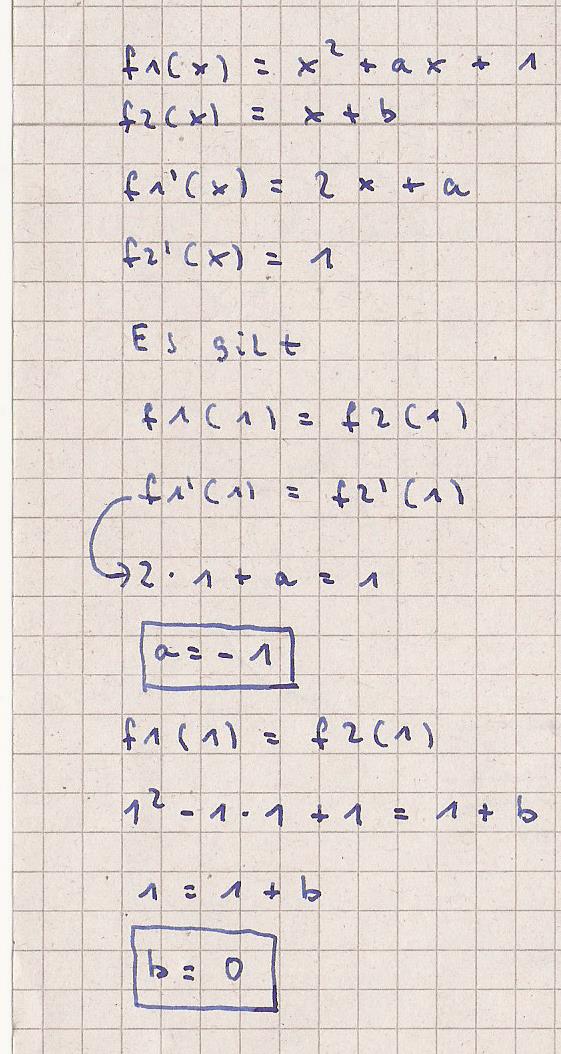 f1(x) = x² + ax + 1
f2(x) = x + b
f1'(x) = 2x + a
f2'(x) = 1
Es gilt
f1(1) = f2(1)
f1'(1) = f2'(1)
2·1 + a = 1
a = -1
f1(1) = f2(1)
1² - 1·1 + 1 = 1 + b
1 = 1 + b
b = 0